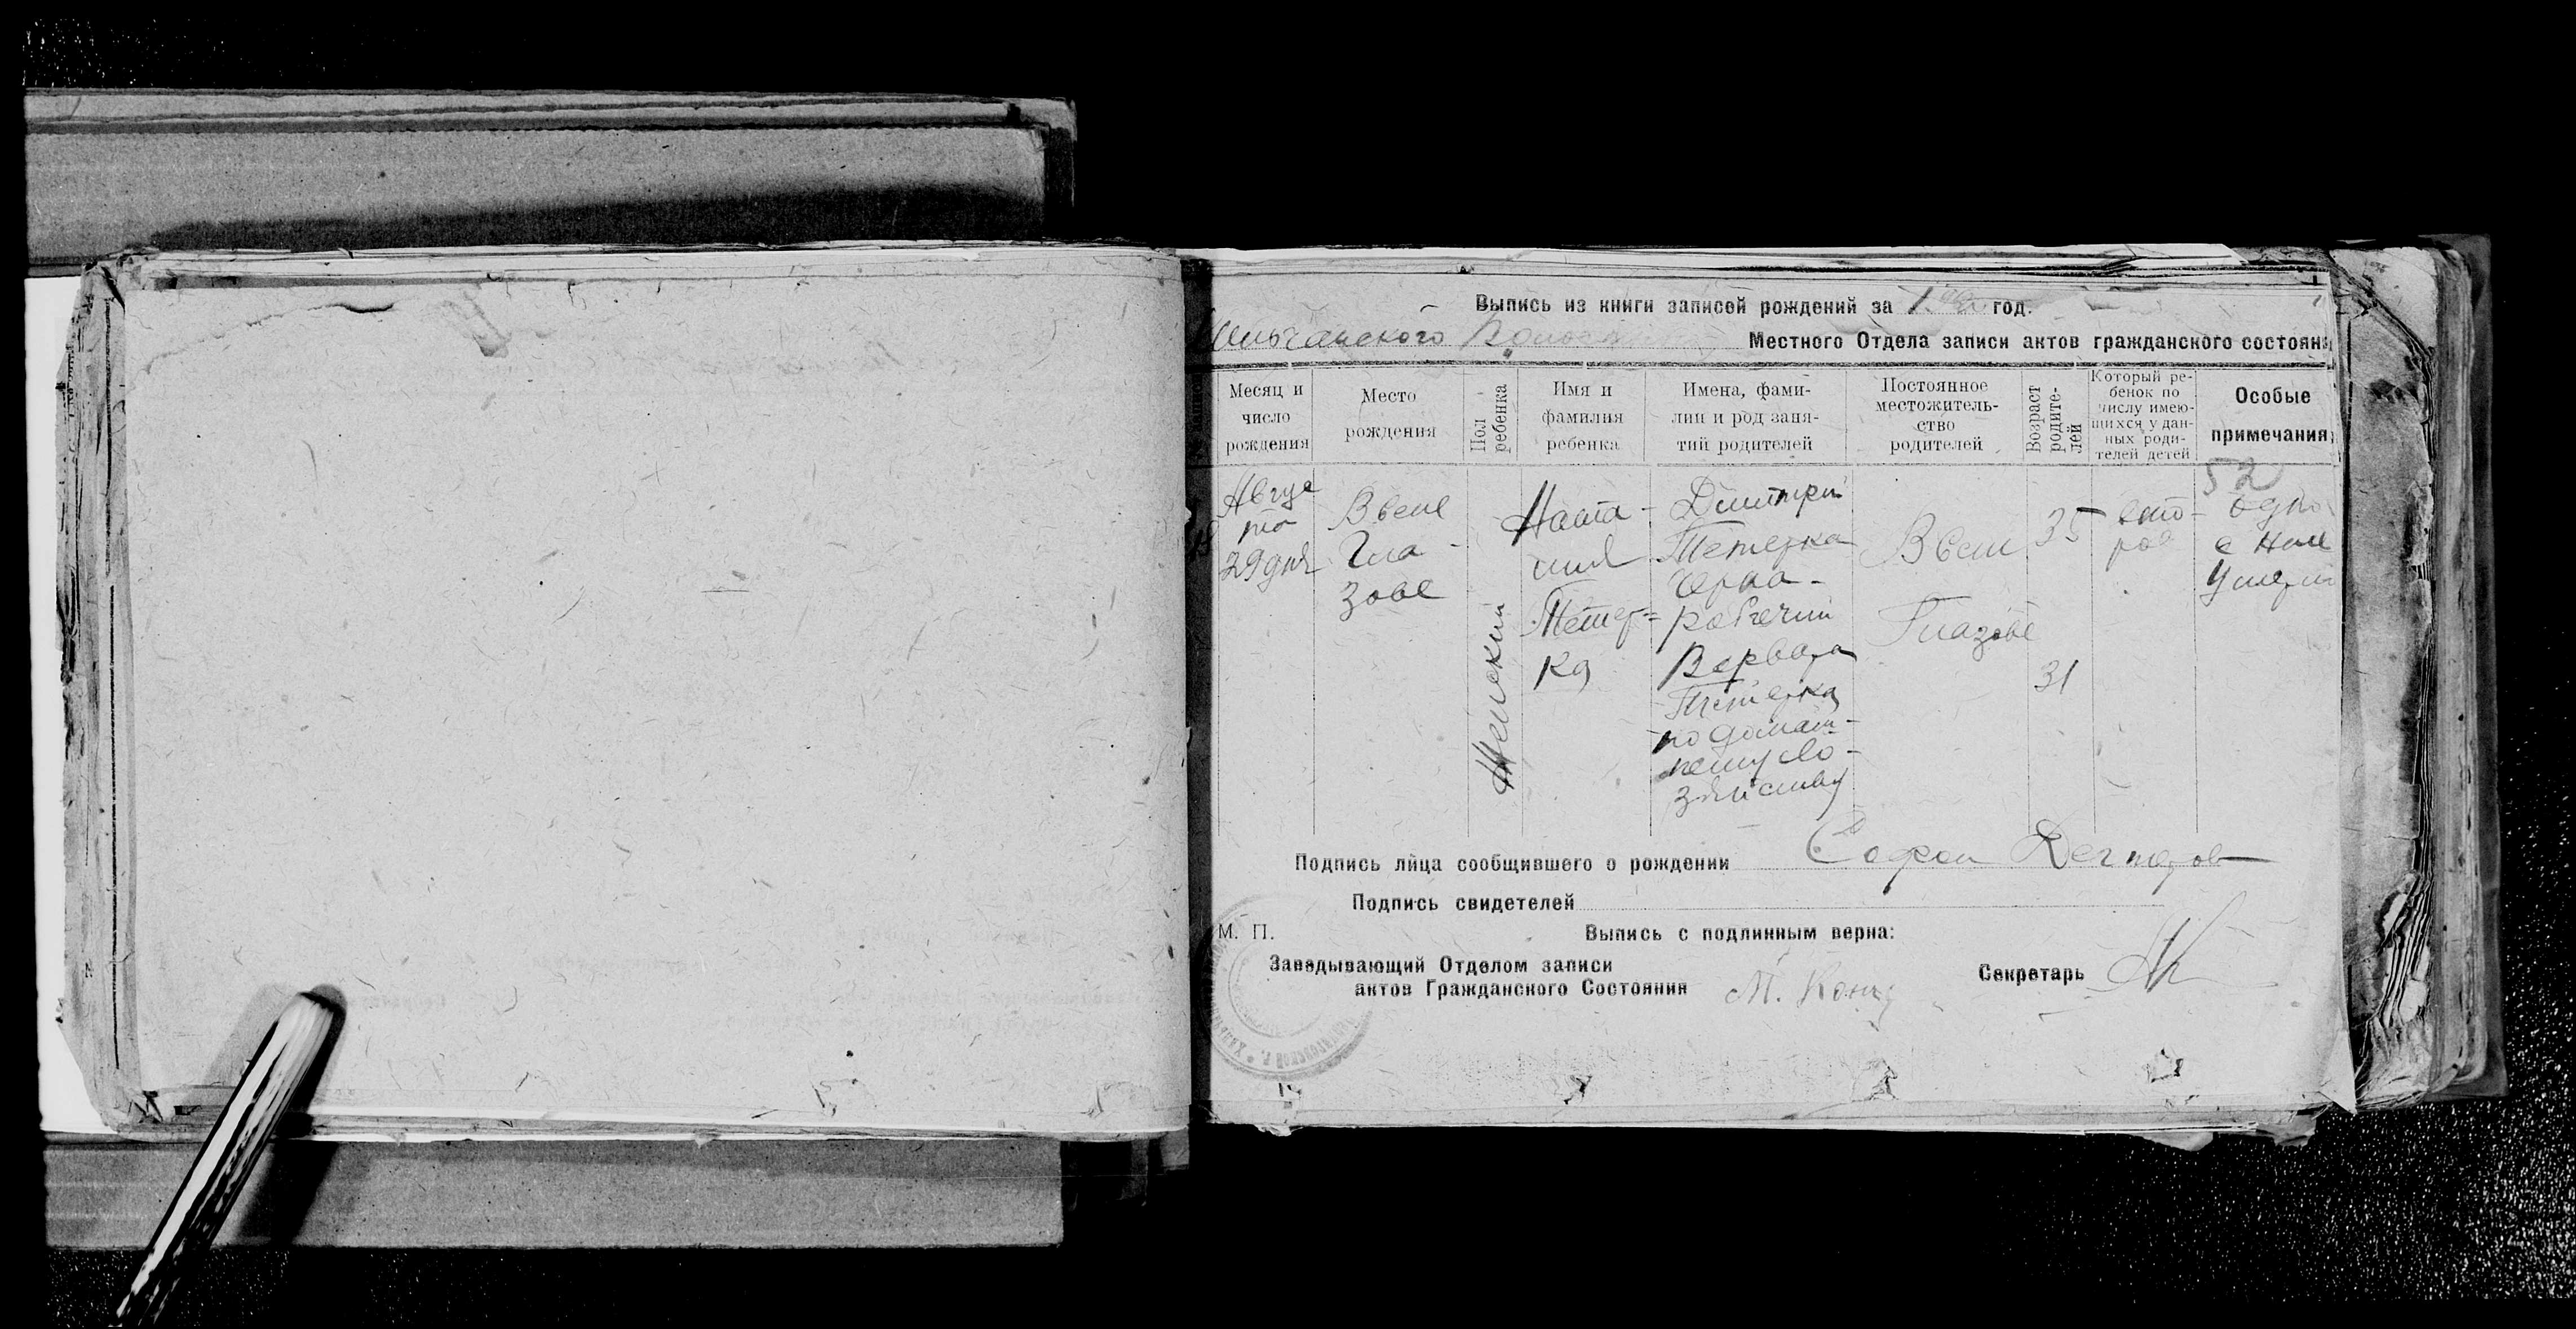 Выпись из книги записей рождений за год.
Местного Отдела записи актов гражданского состоян
Месяц и
число
рождения
Место
рождения
Пол
ребенка
Имя и
фамилия
ребенка
Имена, фами-
лии и род заня-
тий родителей
Постоянное
местожитель-
ство
родителей
Возраст
родите-
лей
Который ре-
бенок по
числу имею-
щихся у дан-
ных роди-
телей детей
Особые
примечания
Авгус
та
29 дня
В селе
Гла-
зове
Женский
Ната-
лия
Тетер-
ка
Дмитрий
Тетерка
черно-
рабочий
Варвара
Тетерка
по домаш-
нему хо-
зяйству
В селе
Глазове
35
31
вто-
рой
52
одна
с них
умерла
Подпись лица сообщившего о рождении Софрон Дегтярев
Подпись свидетелей
М. П.
Выпись с подлинным верна:
Заведывающий Отделом записи
актов Гражданского Состояния М.
Секретарь